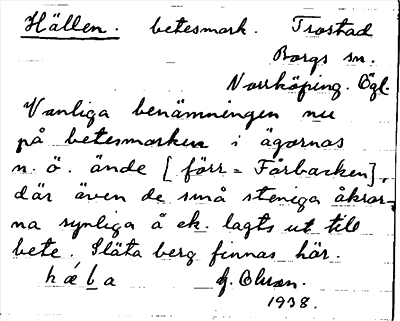 Hällen. betesmark. Trostad
Borgs sn.
Norrköping. Ögl.
Vanliga benämningen nu
på betesmarken i ägornas
n. ö. ände [förr = Fårbacken],
där även de små steniga åkrar-
na synliga å ek. lagts ut till
bete. Släta berg finnas här.
1938.